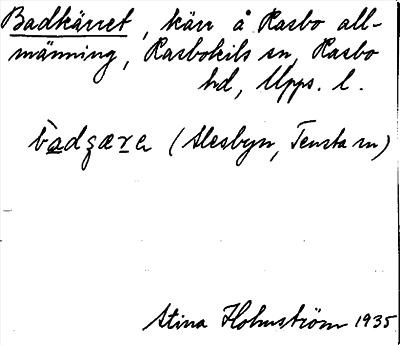 Badkärret, kärr å Rasbo all-
männing, Rasbokils sn, Rasbo
hd, Upps. l.
bàdʒæra (Alesbyn, Tensta sn)
Stina Holmström 1935